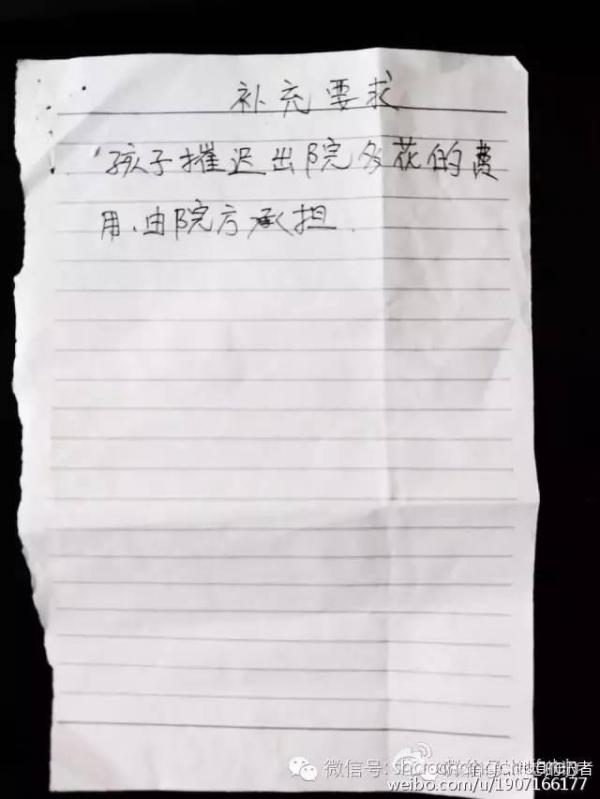 补充要求
孩子摧迟出院多花的费
用.由院方承担.
微信号:
weibo.com/u/1907166177